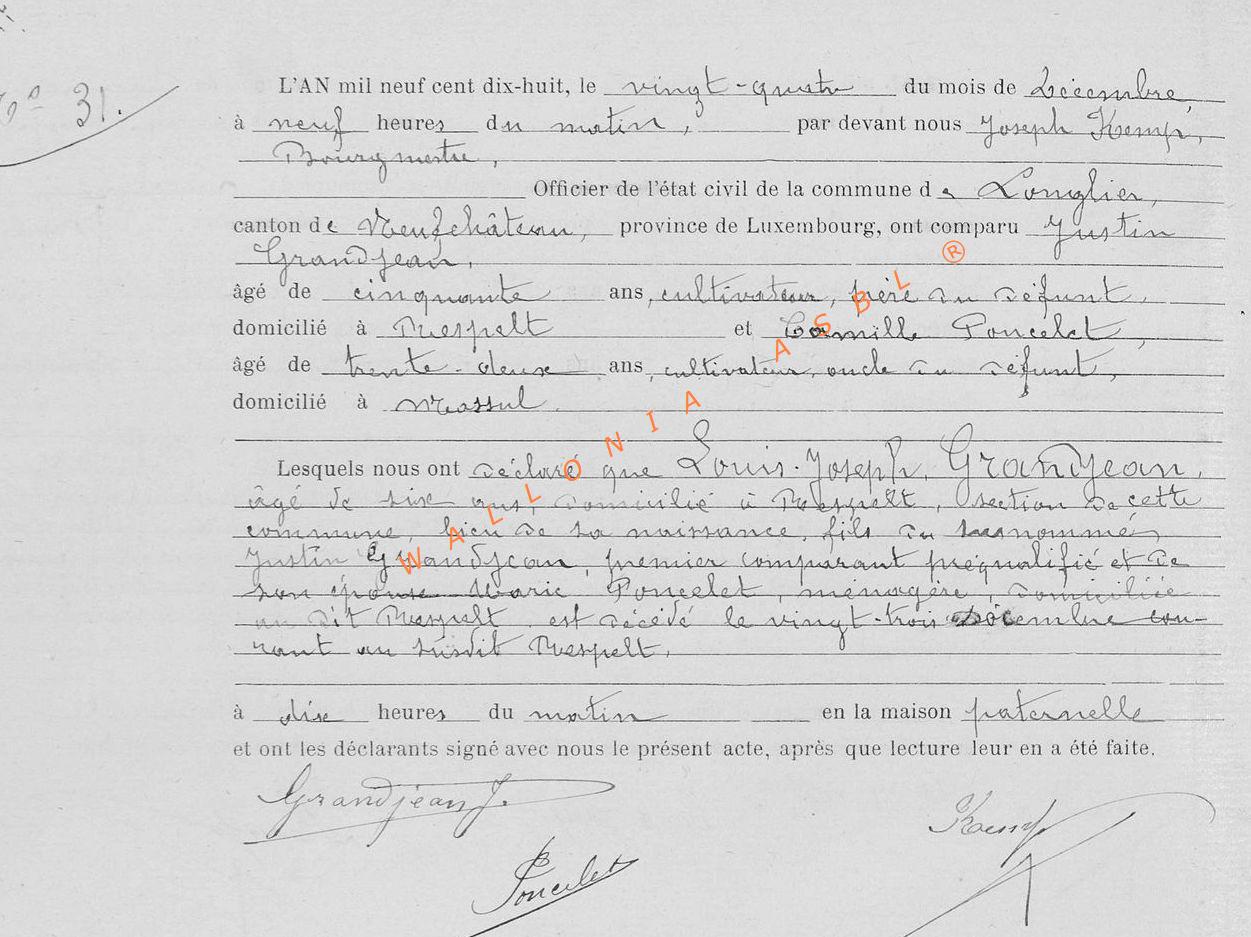 N° 31.
L'AN mil neuf cent dix-huit, le vingt-quatre du mois de Décembre,
à neuf heures du matin, par devant nous Joseph Kemp,
Bourgmestre,
Officier de l'état civil de la commune de Longlier,
canton de Neufchâteau, province de Luxembourg, ont comparu Justin
Grandjean,
âgé de cinquante ans, cultivateur, père du défunt,
domicilié à Respelt et Camille Poncelet,
âgé de trente-deux ans, cultivateur, oncle du défunt,
domicilié à Massul.
Lesquels nous ont déclaré que Louis-Joseph Grandjean,
âgé de six ans, domicilié à Respelt, section de cette
commune, lieu de sa naissance, fils du susnommé
Justin Grandjean, premier comparant préqualifié et de
son épouse Marie Poncelet, ménagère, domiciliée
au dit Respelt est décédé le vingt-trois décembre cou-
rant au susdit Respelt,
à dix heures du matin en la maison paternelle
et ont les déclarants signé avec nous le présent acte, après que lecture leur en a été faite.
Grandjean J.
Kemp
Poncelet
WALLONIA ASBL ®